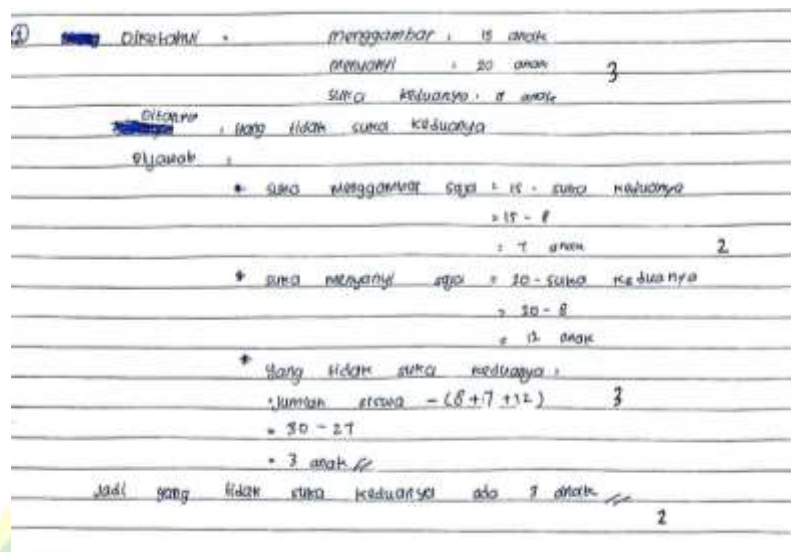 ② Diketahui : menggambar : 15 anak
menyanyi : 20 anak 3
suka keduanya : 8 anak
Ditanya : yang tidak suka keduanya
Dijawab :
* suka menggambar saja = 15 - suka keduanya
= 15 - 8
= 7 anak 2
* suka menyanyi saja = 20 - suka keduanya
= 20 - 8
= 12 anak
* yang tidak suka keduanya :
Jumlah siswa - (8 + 7 + 12) 3
= 30 - 27
= 3 anak //
Jadi yang tidak suka keduanya ada 3 anak //
2